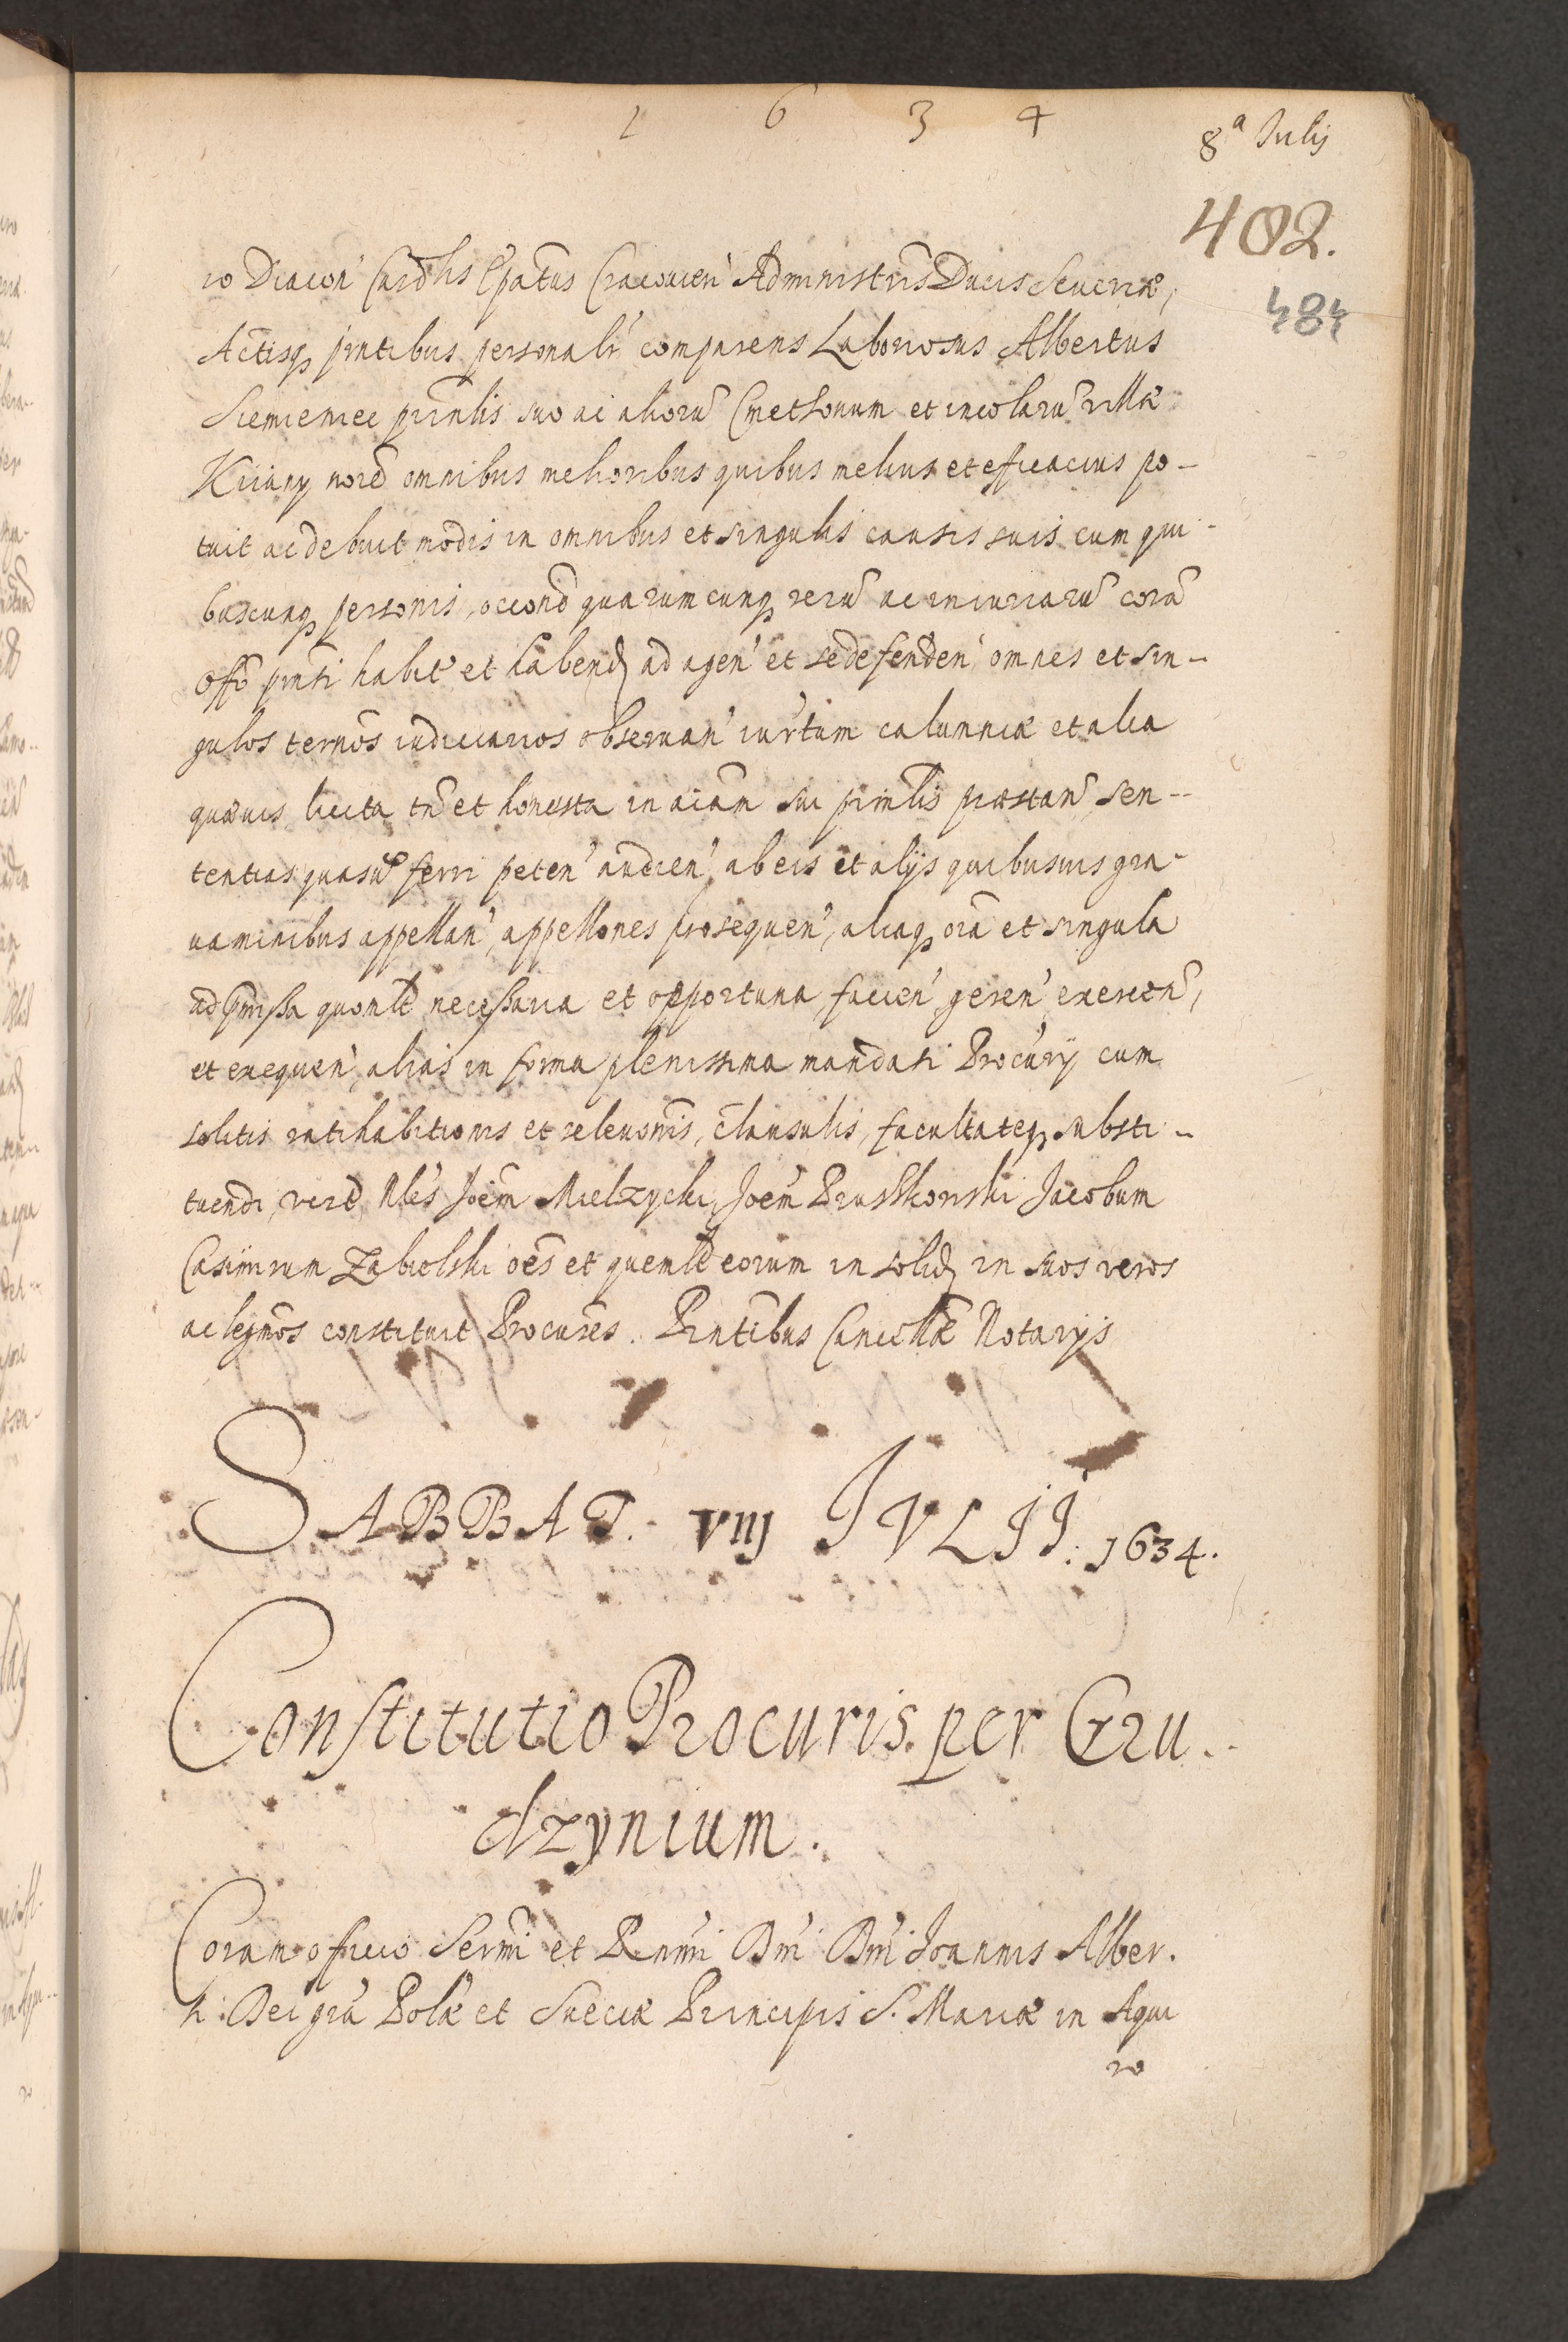 1 6 3 4
8ª Iulij
402.
484
ro Diacon' Cardlis Epatus Cracovien' Administris Ducis Severiæ,
Actisq₃ pntibus personalr comparens Laboriosus Albertus
Siemieniec prinlis suo ac aliorū Cmethonum et incolarū villæ
noīe omnibus melioribus quibus melius et efficacius po-
tuit ac debuit modis in omnibus et singulis causis suis cum qui-
buscunq₃ personis, occone quarumcunq₃ rerū ac iniuriarū corā
Offo pnti habit' et habend ad agen' et se defenden' omnes et sin-
gulos ternos iudiciarios observan' iur'tum calumniæ et alia
quævis licita tn et honesta in aiam sui prinlis præstan' sen--
tentias quasvis ferri peten' audien', ab eis et alijs quibusvis gra-
vaminibus appellan', appellones prosequen', aliaq₃ oīa et singula
ad pmissa quomlt necessaria et opportuna, facien' geren' exercen',
et exequen', alias in forma plenissima mandati Procurij cum
solitis ratihabitionis et relevonis, clausulis, facultateq₃ substi-
tuendi, vide Nbles Joēm Mielzycki, Joēm Pruszkowski Jacobum
Casimirum Zabielski oēs et quemlt eorum in solid in suos veros
ac legmos constituit Procures. Pntibus Cancellæ Notarijs
SABBAT. VIIJ IVLII. 1634.
Constitutio Procuris per Gru--
dzynium.
Coram officio Sermi et Rndmi Dni Dni Joannis Alber.
ti Dei gra Polæ et Sueciæ Principis S. Mariæ in Aqui
ro